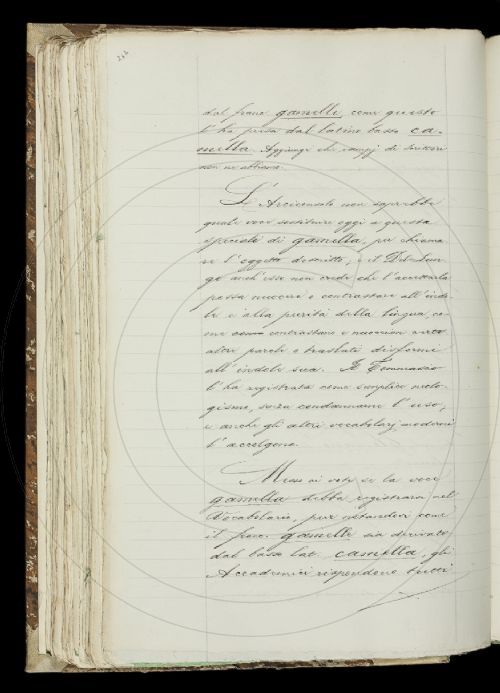 262
dal franc. gamelle, come questo
l'ha presa dal latino basso ca-
mella. Aggiunge che esempj di scrittori
non ne abbiamo.
L'Arciconsolo non saprebbe
quale voce sostituire oggi a questa
speciale di gamella, per chiama-
re l'oggetto descritto; e il Del Lun-
go anch'esso non crede che l'accettarla
possa nuocere o contrastare all'indo-
le e alla purità della lingua, co-
me contrastano e nuocciono
altre parole e traslati disformi
all'indole sua. Il Tommaseo
l'ha registrata come semplice neolo-
gismo, senza condannarne l'uso,
e anche gli altri vocabolarj moderni
l'accolgono.
Messo ai voti se la voce
gamella debba registrarsi nel
Vocabolario, pur notandosi come
il franc. gamelle sia derivato
dal basso lat. camella, gli
Accademici rispondono tutti